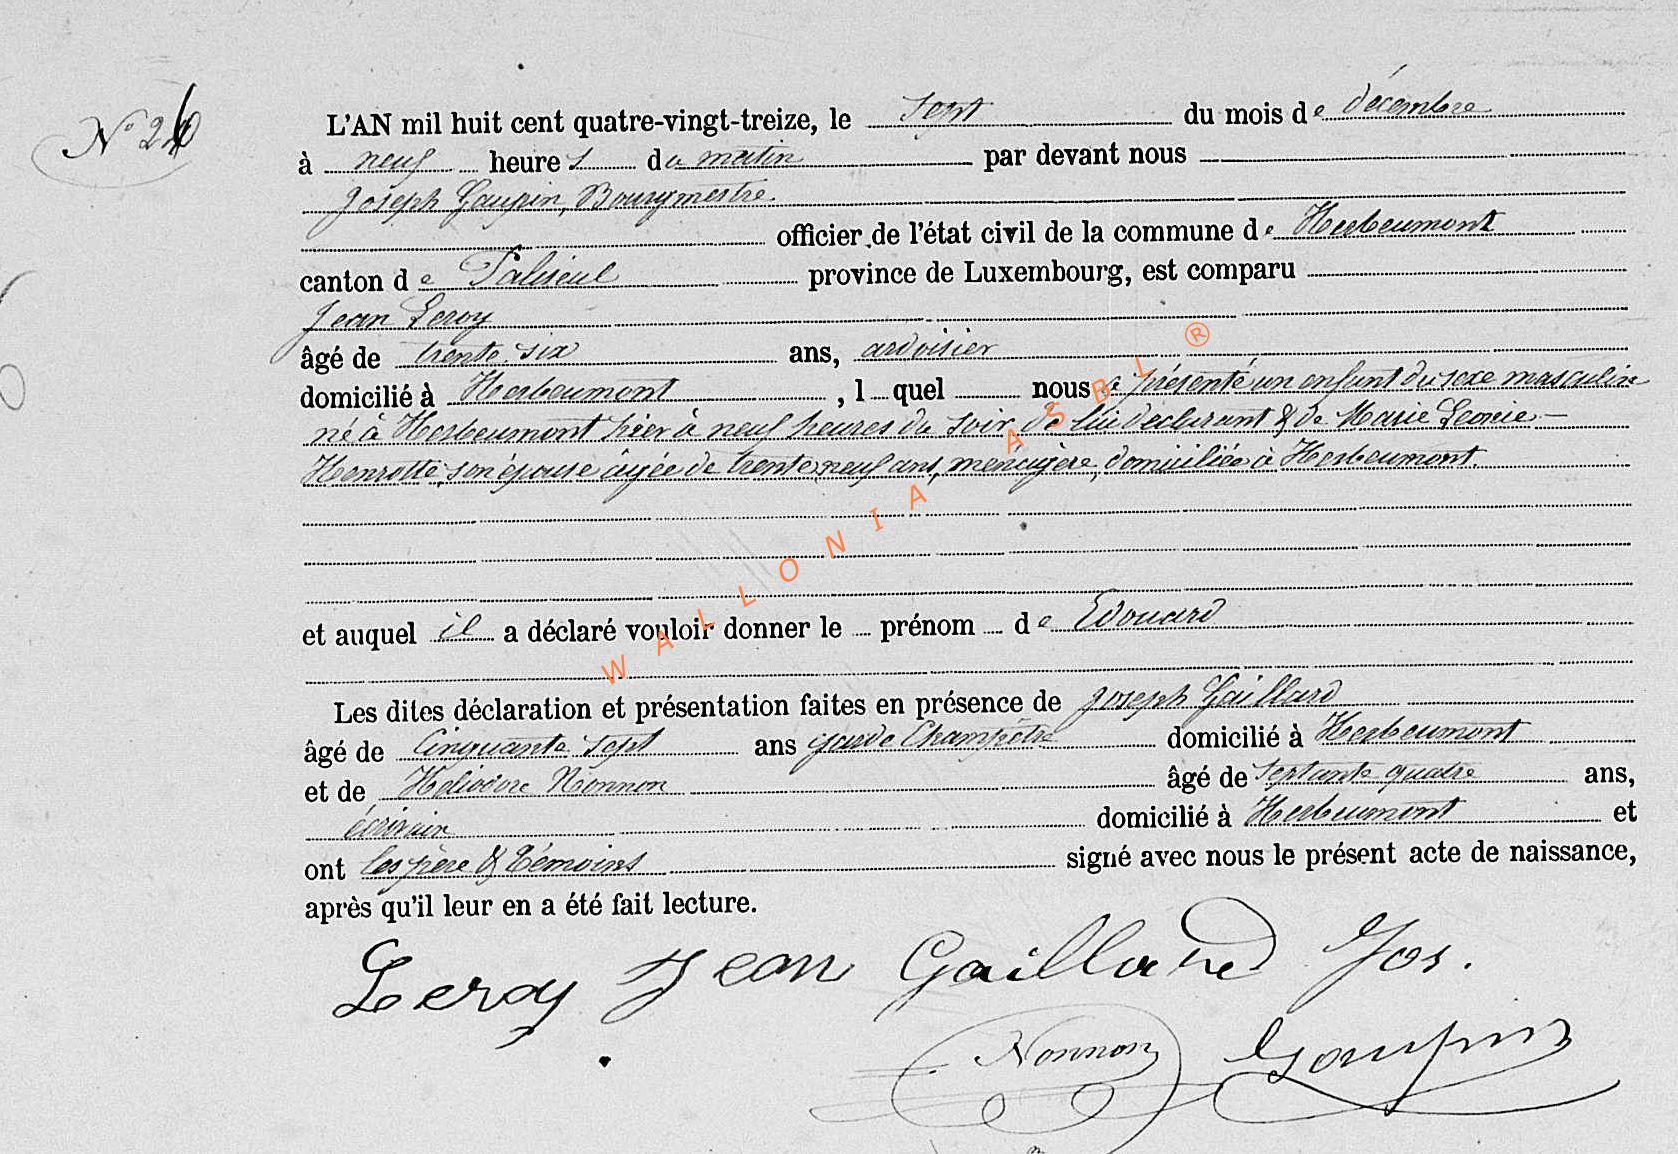 N° 26
L'AN mil huit cent quatre-vingt-treize, le sept du mois de décembre
à neuf heures du matin par devant nous
Joseph Gaupin, Bourgmestre
officier de l'état civil de la commune de Herbeumont
canton de Paliseul province de Luxembourg, est comparu
Jean Leroy
âgé de trente six ans, ardoisier
domicilié à Herbeumont, lquel nous a présenté un enfant du sexe masculin
né à Herbeumont hier à neuf heures du soir, de lui déclarant & de Marie Leonie
Henrotte, son épouse âgée de trente neuf ans, ménagère, domiciliée à Herbeumont.
et auquel il a déclaré vouloir donner le prénom de Edouard
Les dites déclaration et présentation faites en présence de Joseph Gaillard
âgé de Cinquante sept ans garde Champêtre domicilié à Herbeumont
et de Héliodore Nonnon âgé de septante quatre ans,
écrivain domicilié à Herbeumont et
ont les père & témoins signé avec nous le présent acte de naissance,
après qu'il leur en a été fait lecture.
Leroy Jean Gaillard Jos.
Nonnon Gaupin
WALLONIA ASBL ®